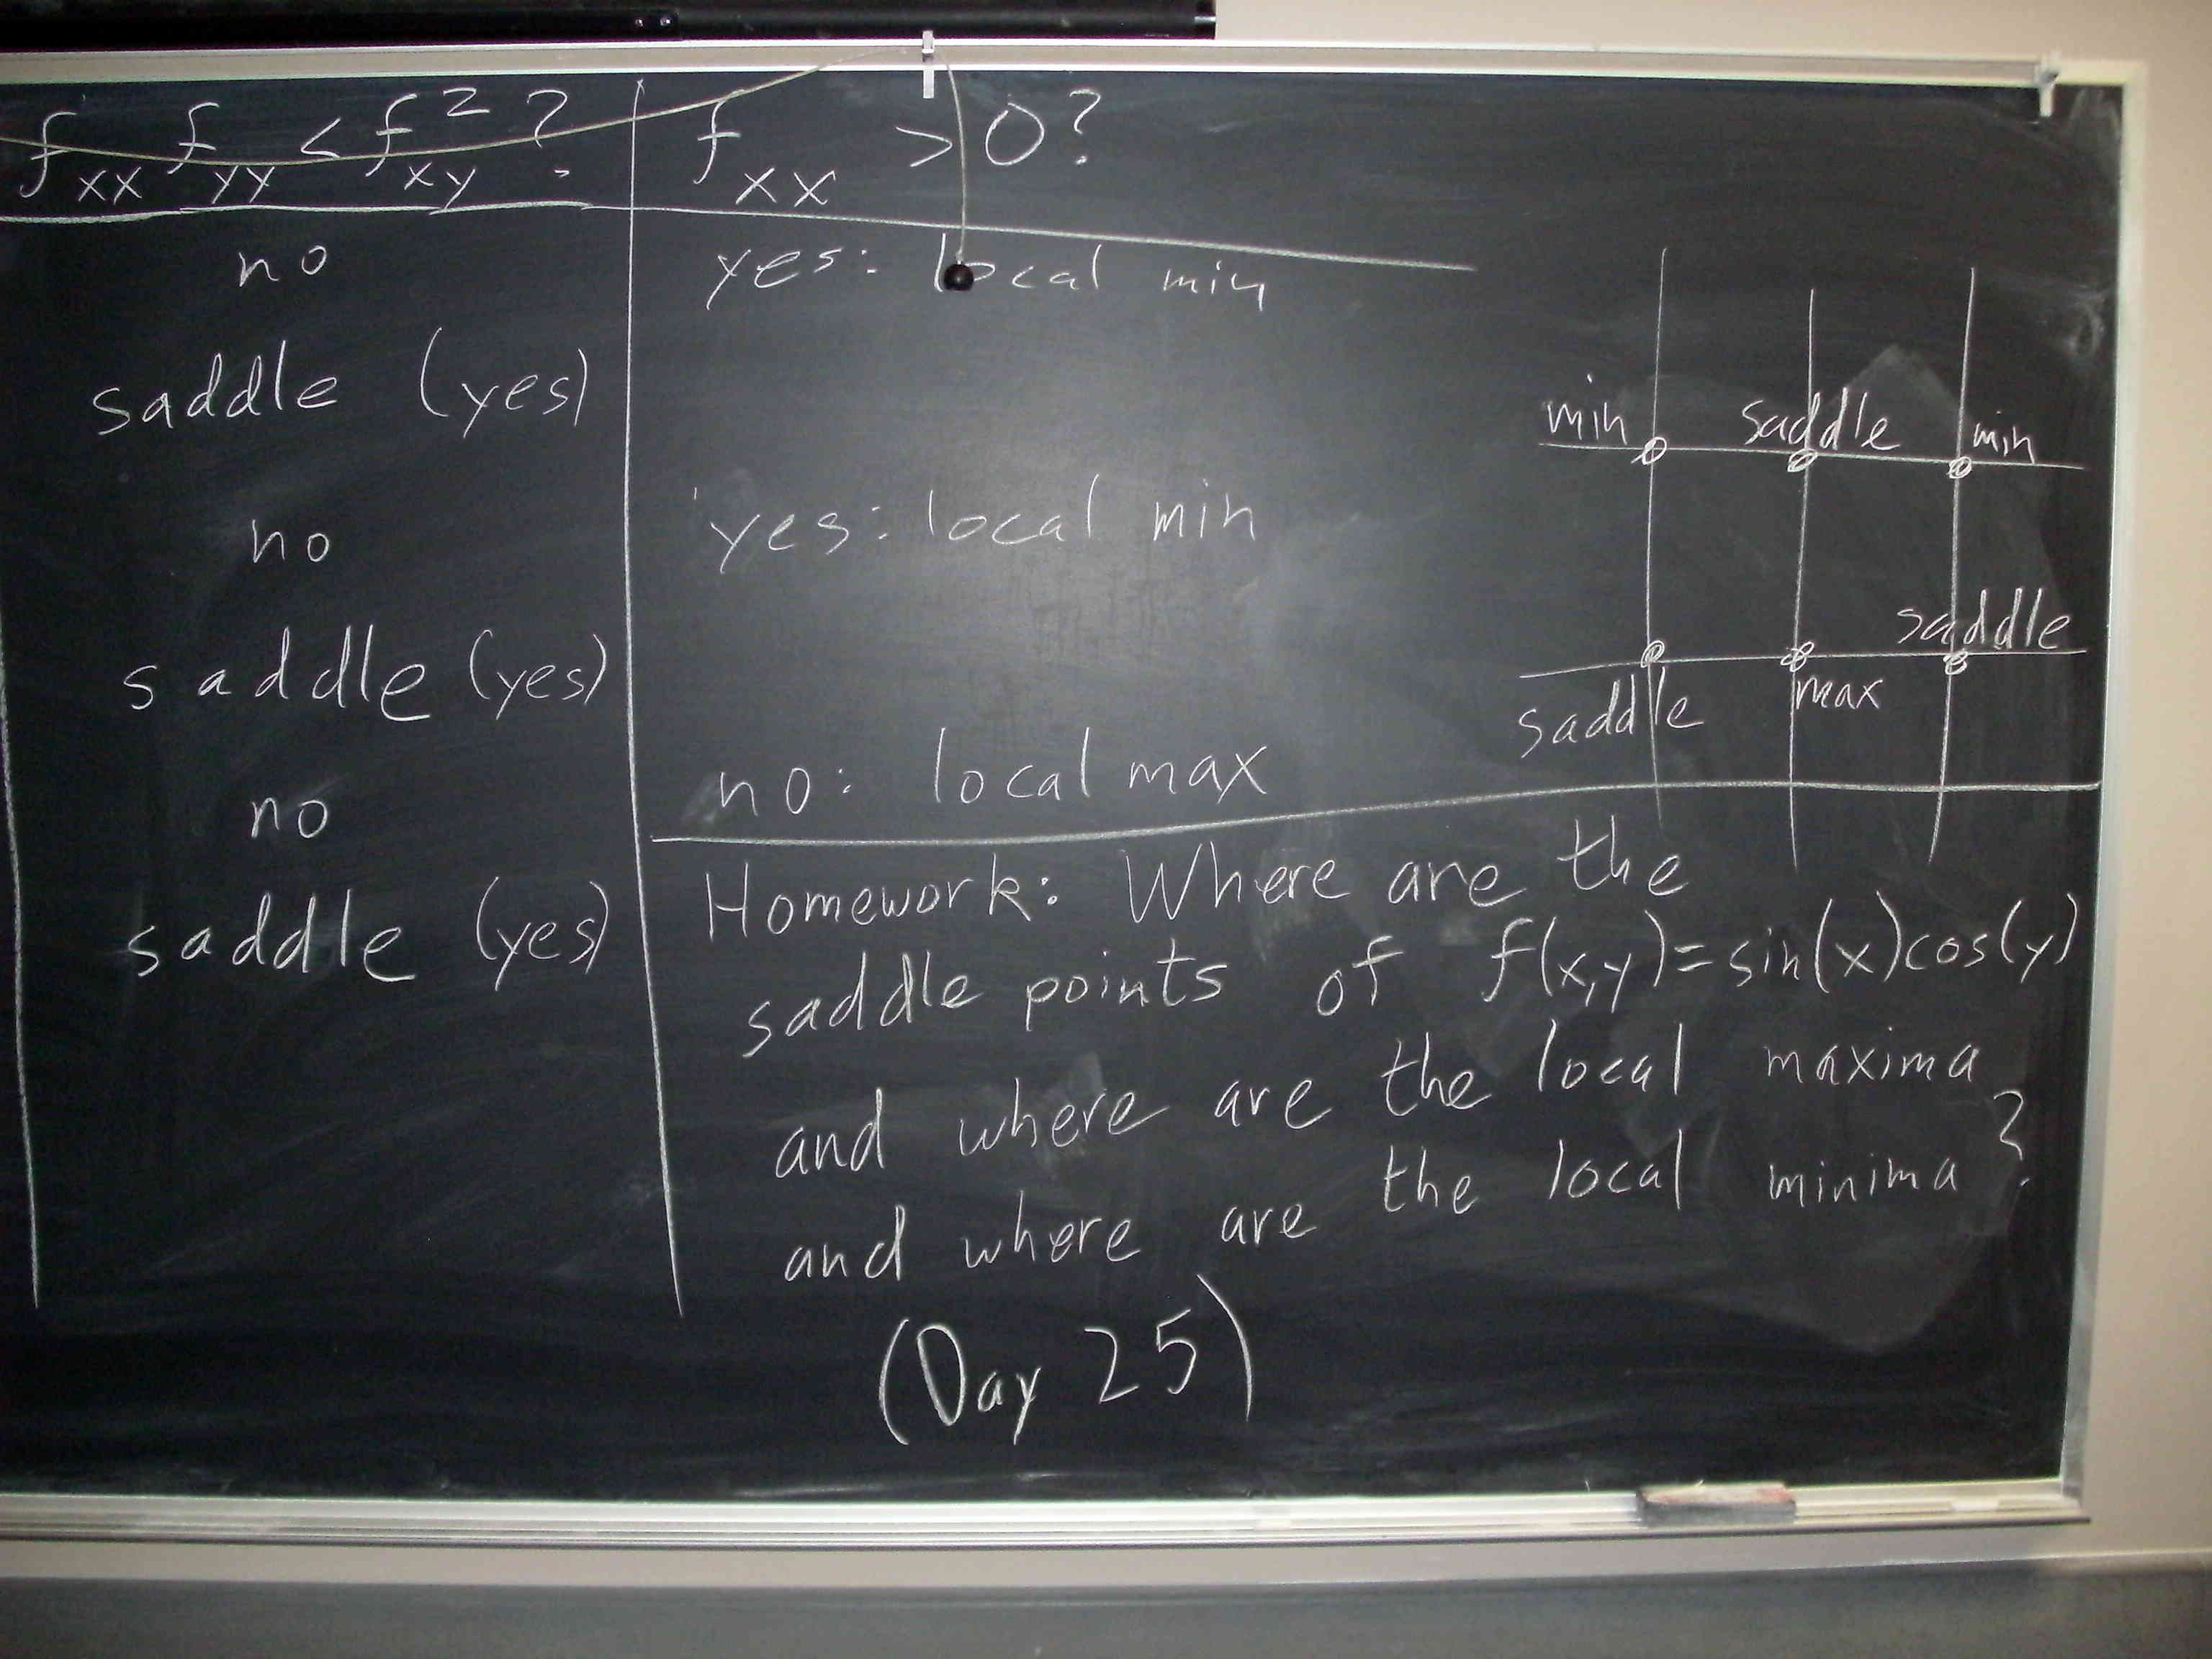 f_xx f_yy < f_xy^2 ? f_xx > 0?
no yes: local min
saddle (yes)
no yes: local min
saddle (yes)
no no: local max
saddle (yes)
min saddle min
saddle
saddle max
Homework: Where are the
saddle points of f(x,y)=sin(x)cos(y)
and where are the local maxima
and where are the local minima?
(Day 25)